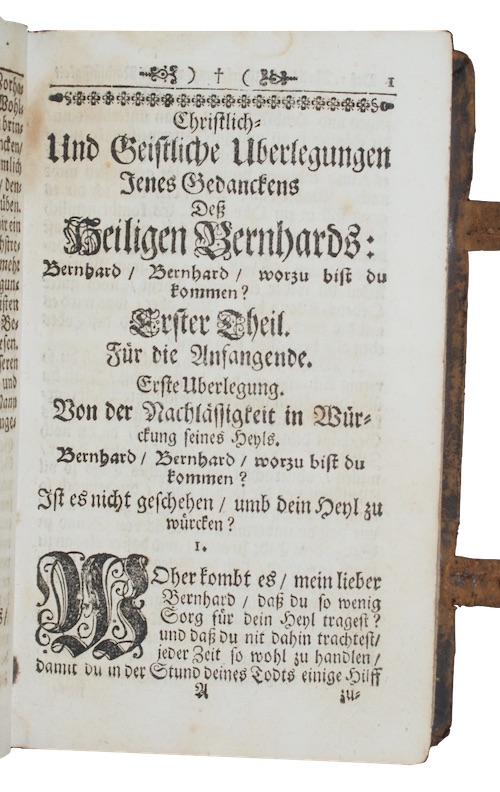 ) † (
1
Christlich-
Und Geistliche Uberlegungen
Jenes Gedanckens
Deß
Heiligen Bernhards:
Bernhard / Bernhard / worzu bist du
kommen?
Erster Theil.
Für die Anfangende.
Erste Uberlegung.
Von der Nachlässigkeit in Wür-
ckung seines Heyls.
Bernhard / Bernhard / worzu bist du
kommen?
Ist es nicht geschehen / umb dein Heyl zu
würcken?
1.
WOher kombt es / mein lieber
Bernhard / daß du so wenig
Sorg für dein Heyl tragest?
und daß du nit dahin trachtest /
jeder Zeit so wohl zu handlen /
damit du in der Stund deines Todts einige Hilff
A
zu-